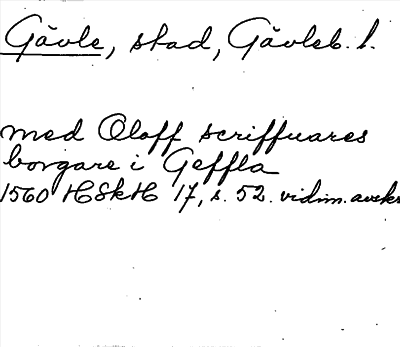 Gävle, stad, Gävleb. l.
med Oloff scriffuares
borgare i Geffla
1560 HSkH 17, s. 52. vidim. avskr